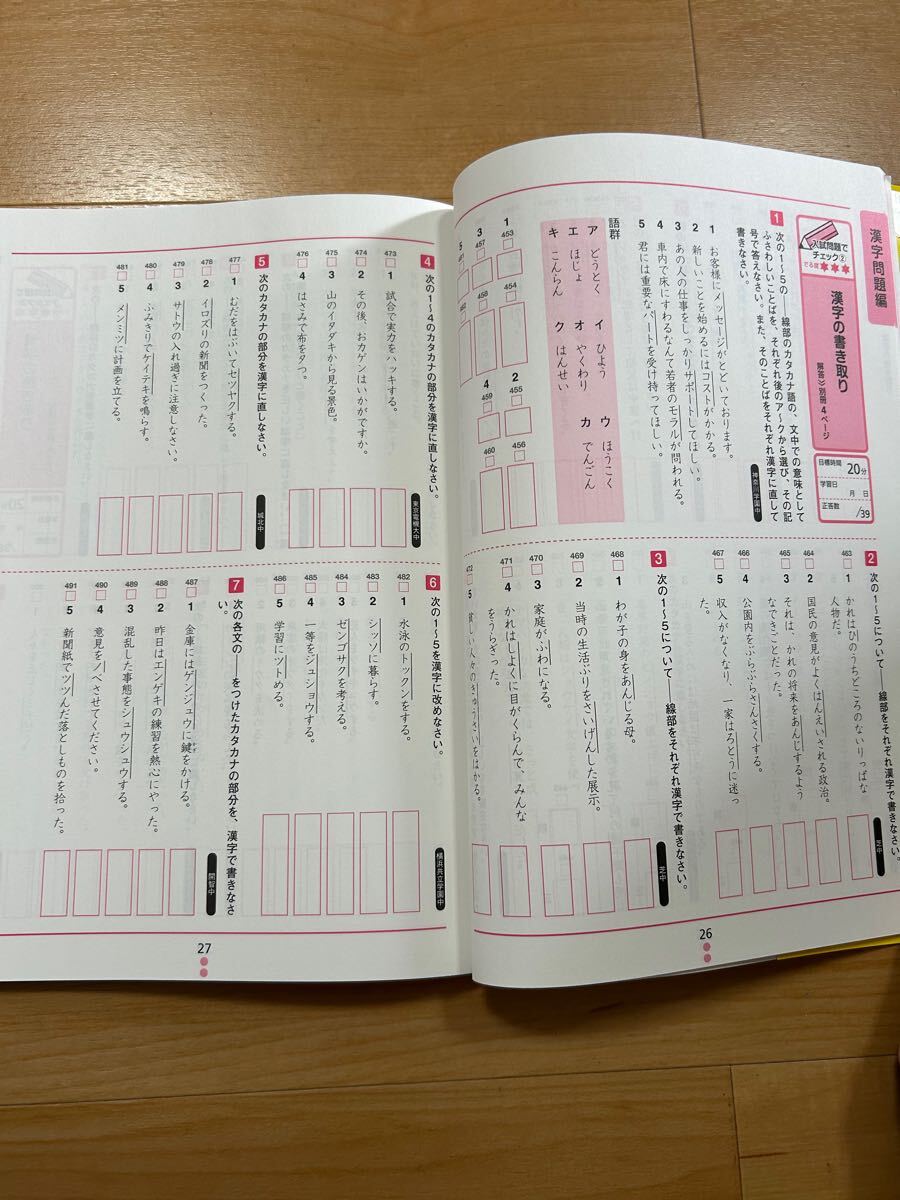 漢字問題編
入試問題で
チェック②
でる度★★★
漢字の書き取り
解答≫別冊4ページ
目標時間 20分
学習日 月 日
正答数 /39
1 次の1〜5の――線部のカタカナ語の、文中での意味として
ふさわしいことばを、それぞれ後のア〜クから選び、その記
号で答えなさい。また、そのことばをそれぞれ漢字に直して
書きなさい。
神奈川学園中
1 お客様にメッセージがとどいております。
2 新しいことを始めるにはコストがかかる。
3 あの人の仕事をしっかりサポートしてほしい。
4 車内で床にすわるなんて若者のモラルが問われる。
5 君には重要なパートを受け持ってほしい。
語群
ア どうとく イ ひよう ウ ほうこく
エ ほじょ オ やくわり カ でんごん
キ こんらん ク はんせい
1 453 454
2 455 456
3 457 458
4 459 460
5
2 次の1〜5について――線部をそれぞれ漢字で書きなさい。
芝中
463 1 かれはひのうちどころのないりっぱな
人物だ。
464 2 国民の意見がよくはんえいされる政治。
465 3 それは、かれの将来をあんじするよう
なできごとだった。
466 4 公園内をぶらぶらさんさくする。
467 5 収入がなくなり、一家はろとうに迷っ
た。
3 次の1〜5について――線部をそれぞれ漢字で書きなさい。
芝中
468 1 わが子の身をあんじる母。
469 2 当時の生活ぶりをさいげんした展示。
470 3 家庭がふわになる。
471 4 かれはしよくに目がくらんで、みんな
をうらぎった。
472 5 貧しい人々のきゅうさいをはかる。
26
4 次の1〜4のカタカナの部分を漢字に直しなさい。
東京電機大中
473 1 試合で実力をハッキする。
474 2 その後、おカゲンはいかがですか。
475 3 山のイタダキから見る景色。
476 4 はさみで布をタつ。
5 次のカタカナの部分を漢字に直しなさい。
城北中
477 1 むだをはぶいてセツヤクする。
478 2 イロズリの新聞をつくった。
479 3 サトウの入れ過ぎに注意しなさい。
480 4 ふみきりでケイテキを鳴らす。
481 5 メンミツに計画を立てる。
6 次の1〜5を漢字に改めなさい。
横浜共立学園中
482 1 水泳のトックンをする。
483 2 シッソに暮らす。
484 3 ゼンゴサクを考える。
485 4 一等をジュショウする。
486 5 学習にツトめる。
7 次の各文の――をつけたカタカナの部分を、漢字で書きなさ
い。
開智中
487 1 金庫にはゲンジュウに鍵をかける。
488 2 昨日はエンゲキの練習を熱心にやった。
489 3 混乱した事態をシュウシュウする。
490 4 意見をノべさせてください。
491 5 新聞紙でツツんだ落としものを拾った。
27